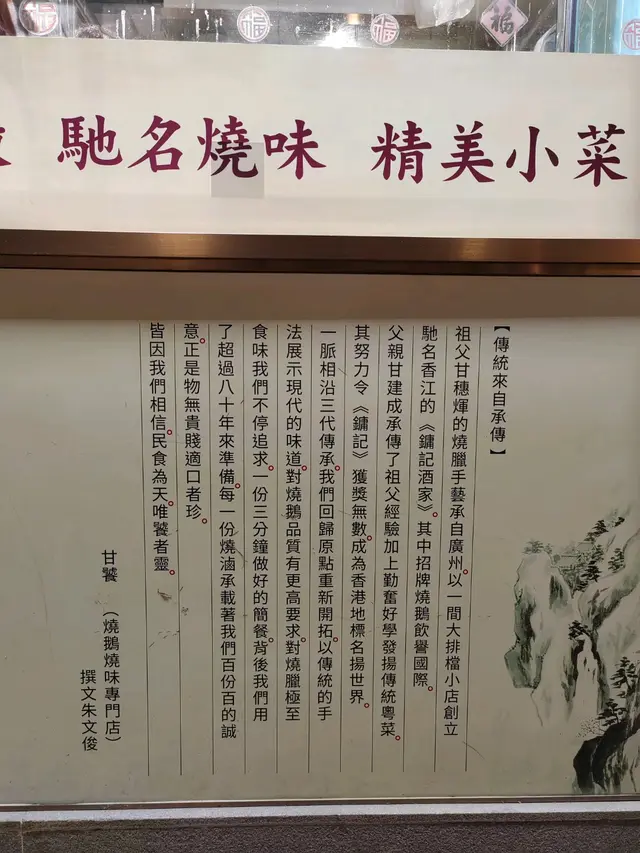 馳名燒味 精美小菜
【傳統來自承傳】
祖父甘穗煇的燒臘手藝承自廣州。以一間大排檔小店創立
馳名香江的《鏞記酒家》。其中招牌燒鵝飲譽國際。
父親甘建成承傳了祖父經驗加上勤奮好學發揚傳統粵菜。
其努力令《鏞記》獲獎無數。成為香港地標名揚世界。
一脈相沿三代傳承。我們回歸原點重新開拓。以傳統的手
法展示現代的味道。對燒鵝品質有更高要求。對燒臘極至
食味我們不停追求。一份三分鐘做好的簡餐。背後我們用
了超過八十年來準備。每一份燒滷承載著我們百份百的誠
意。正是物無貴賤適口者珍。
皆因我們相信。民食為天。唯饕者靈。
甘饕 （燒鵝燒味專門店）
撰文朱文俊